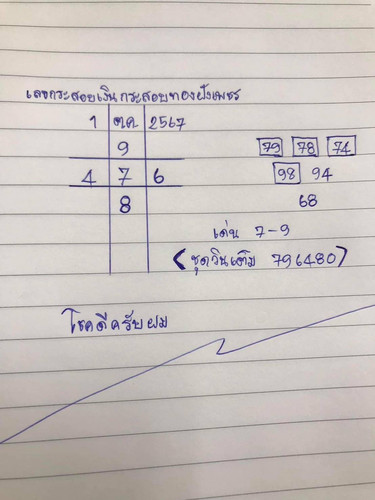 เลขกระสอบเงิน กระสอบทองฝังเพชร
1 ต.ค. 2567
9
79 78 74
4 7 6
98 94
8
68
เด่น 7-9
(ชุดวินเต็ม 796480)
โชคดีครับผม